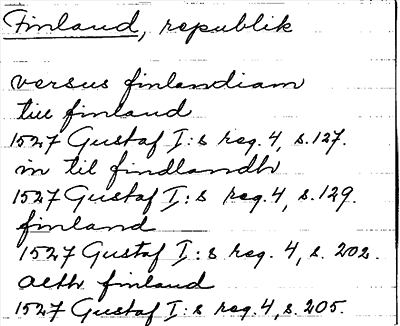 Finland, republik
versus finlandiam
till finland
1527 Gustaf I:s reg. 4, s. 127.
in til findlandh
1527 Gustaf I:s reg. 4, s. 129.
finland
1527 Gustaf I:s reg. 4, s. 202.
aeth finland
1527 Gustaf I:s reg. 4, s. 205.